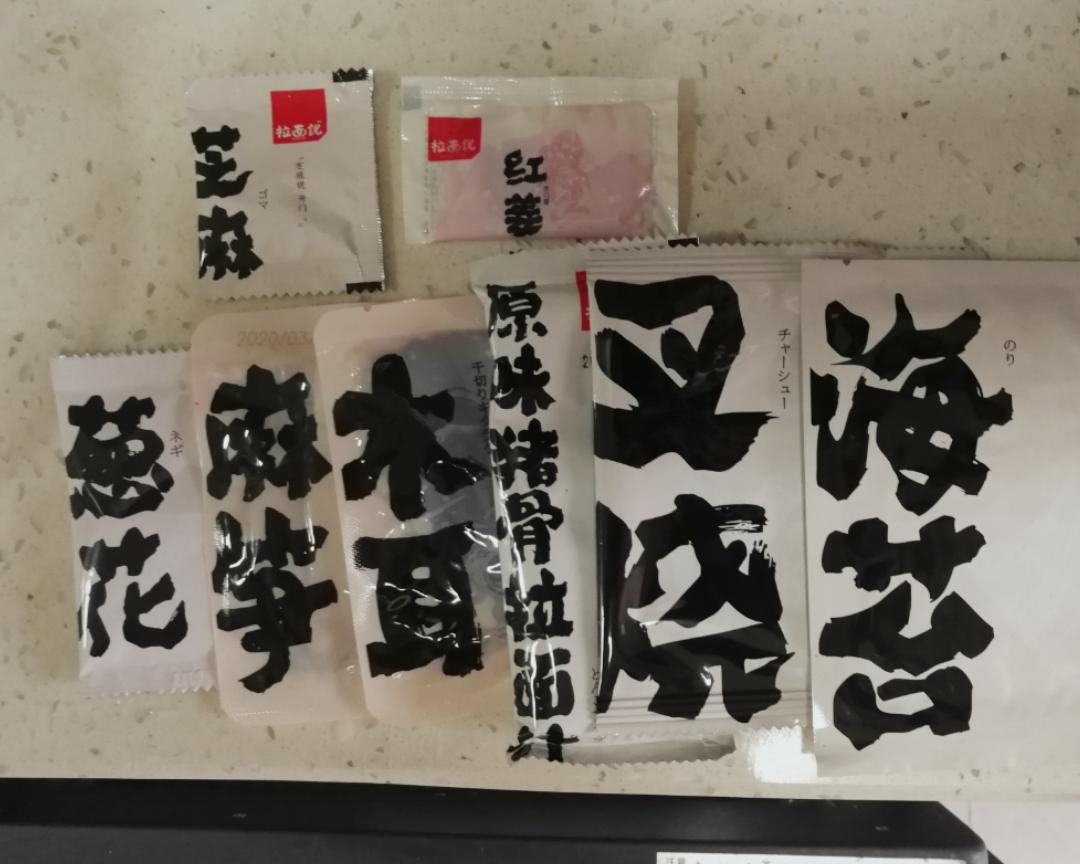 拉面说
芝麻
ゴマ
拉面说
红姜
葱花
ネギ
2020/03
麻笋
木耳
千切りキ
原味猪骨拉面汁
叉烧
チャーシュー
海苔
のり
注意